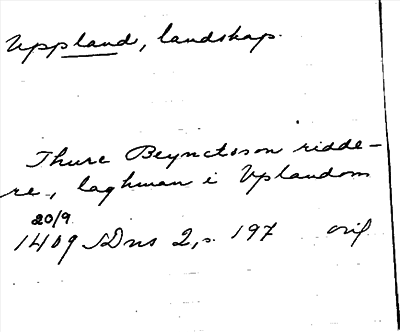 Uppland, landskap.
Thure Beynctson ridde-
re, laghman i Vplandom
20/9
1409 SDns 2, s. 197 orig